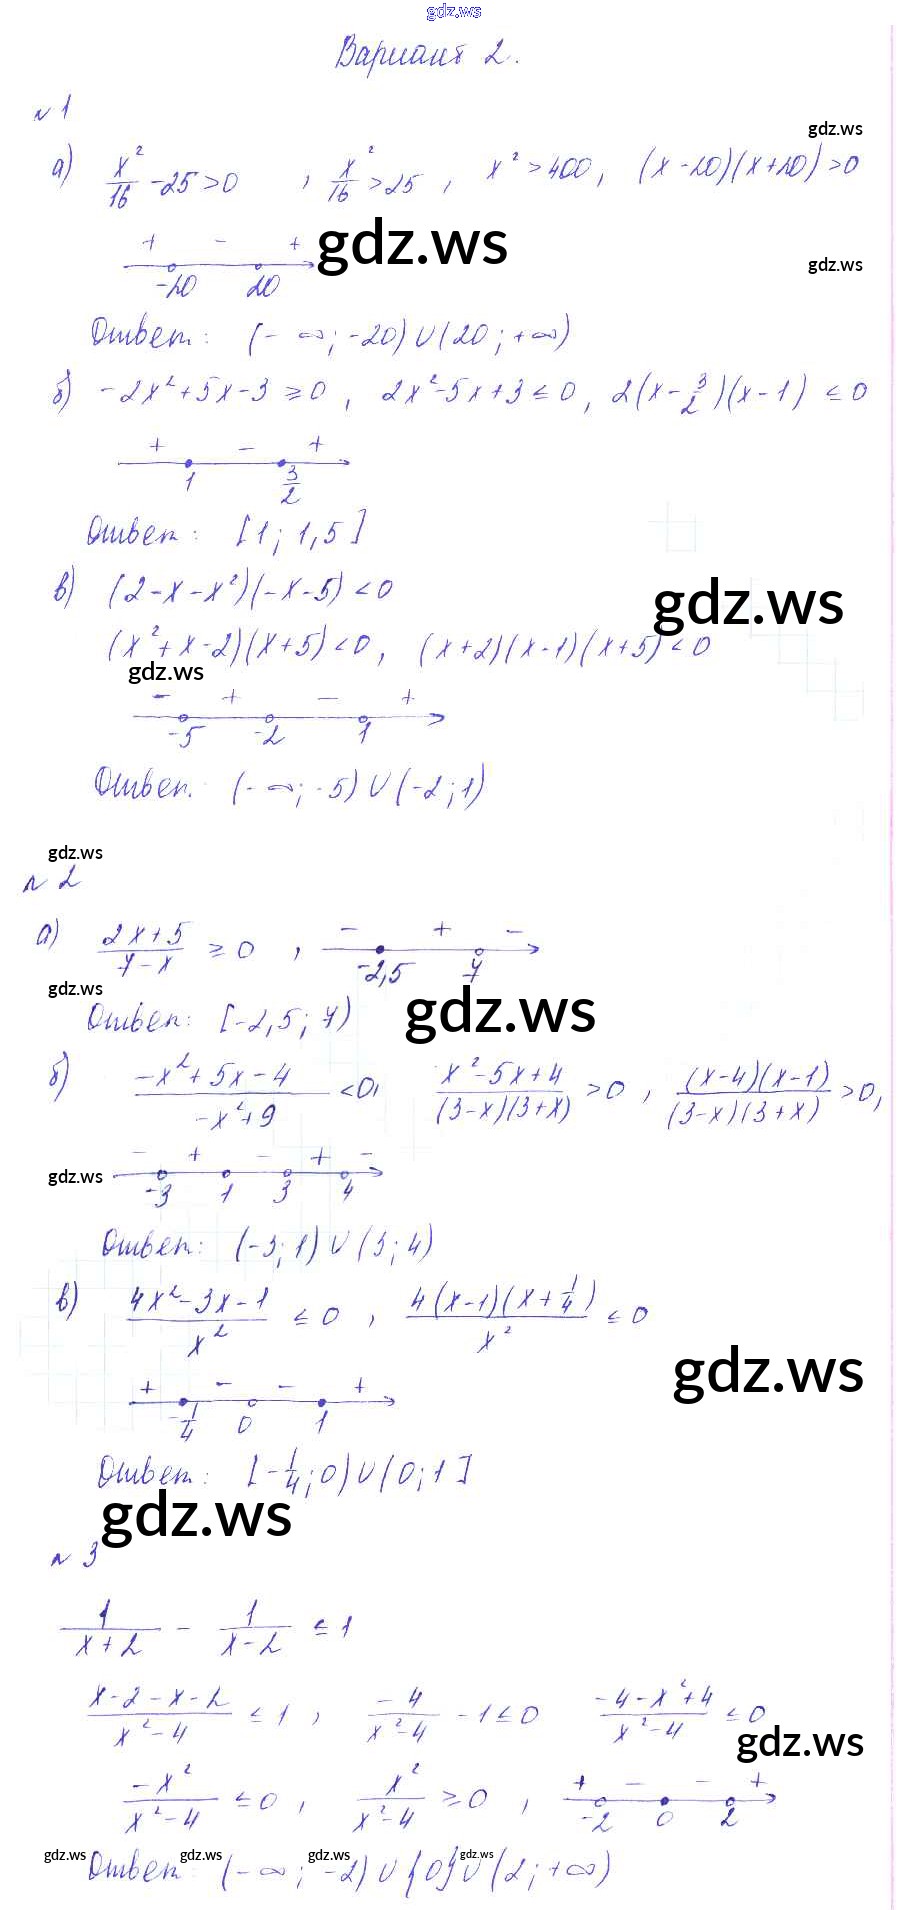 gdz.ws
Вариант 2.
№1
а) x²/16 - 25 > 0 , x²/16 > 25 , x² > 400, (x - 20)(x + 20) > 0
gdz.ws
+ - +
gdz.ws
gdz.ws
-20 20
Ответ: (-∞; -20) ∪ (20; +∞)
б) -2x² + 5x - 3 ≥ 0 , 2x² - 5x + 3 ≤ 0 , 2(x - 3/2)(x - 1) ≤ 0
+ - +
1 3/2
Ответ: [1; 1,5]
в) (2 - x - x²)(-x - 5) < 0
gdz.ws
(x² + x - 2)(x + 5) < 0 , (x + 2)(x - 1)(x + 5) < 0
gdz.ws
- + - +
-5 -2 1
Ответ. (-∞; -5) ∪ (-2; 1)
gdz.ws
№2
а) (2x + 5)/(7 - x) ≥ 0 , - + -
-2,5 7
gdz.ws
Ответ: [-2,5; 7)
gdz.ws
б) (-x² + 5x - 4)/(-x² + 9) < 0, (x² - 5x + 4)/((3 - x)(3 + x)) > 0 , ((x - 4)(x - 1))/((3 - x)(3 + x)) > 0,
- + - + -
gdz.ws
-3 1 3 4
Ответ: (-3; 1) ∪ (3; 4)
в) (4x² - 3x - 1)/x² ≤ 0 , (4(x - 1)(x + 1/4))/x² ≤ 0
gdz.ws
+ - - +
-1/4 0 1
Ответ: [-1/4; 0) ∪ (0; 1]
gdz.ws
№3
1/(x + 2) - 1/(x - 2) ≤ 1
(x - 2 - x - 2)/(x² - 4) ≤ 1 , -4/(x² - 4) - 1 ≤ 0 (-4 - x² + 4)/(x² - 4) ≤ 0
gdz.ws
-x²/(x² - 4) ≤ 0 , x²/(x² - 4) ≥ 0 , + - - +
-2 0 2
gdz.ws gdz.ws gdz.ws gdz.ws
Ответ: (-∞; -2) ∪ {0} ∪ (2; +∞)